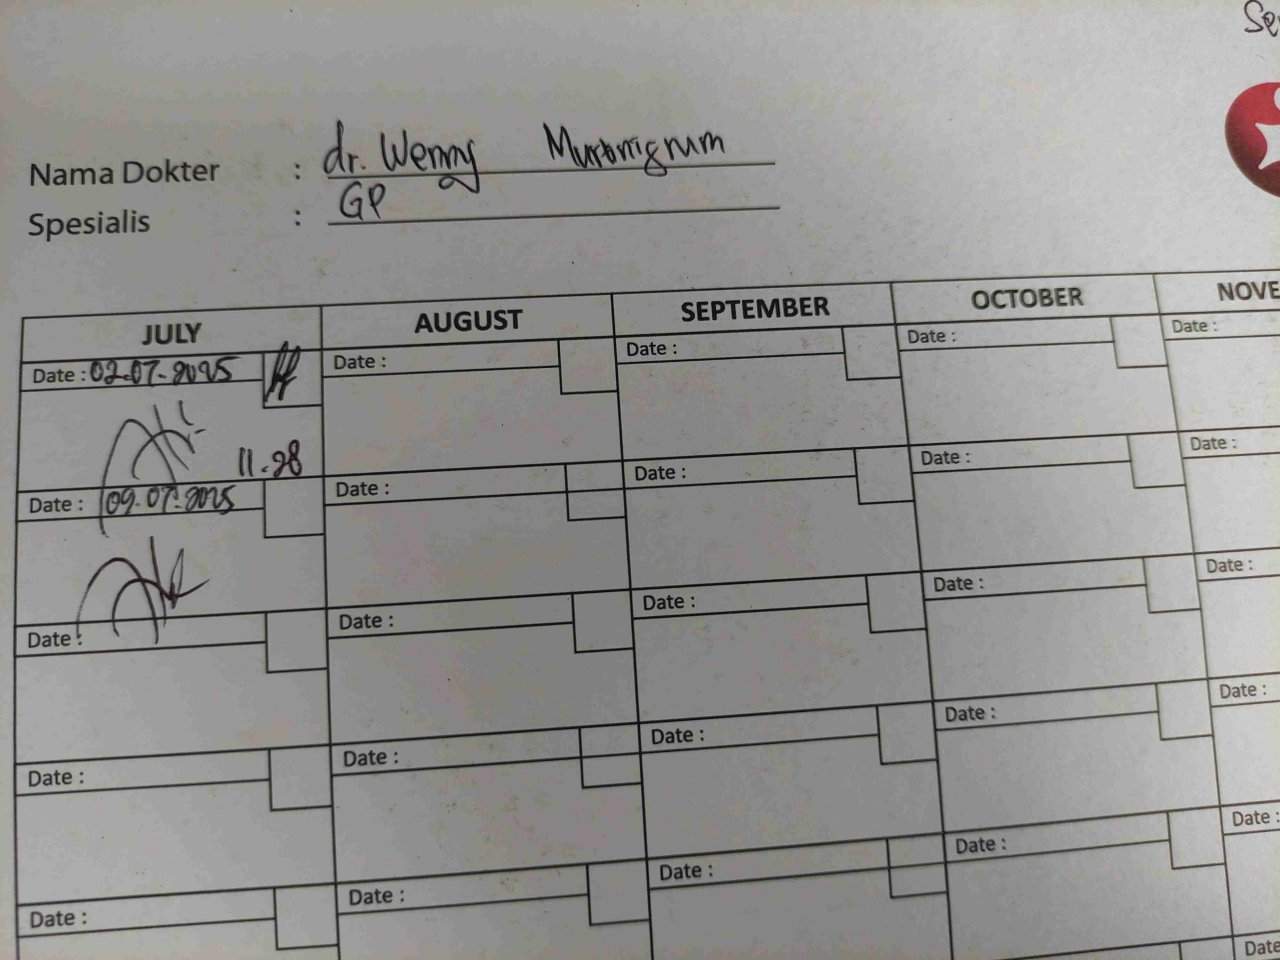 Se
Nama Dokter : dr. Wenny
Spesialis : GP
JULY AUGUST SEPTEMBER OCTOBER NOVE
Date : 02-07-2025 Date : Date : Date : Date :
11.28
Date : 09-07-2025 Date : Date : Date : Date :
Date : Date : Date : Date : Date :
Date : Date : Date : Date : Date :
Date : Date : Date : Date : Date :
Date